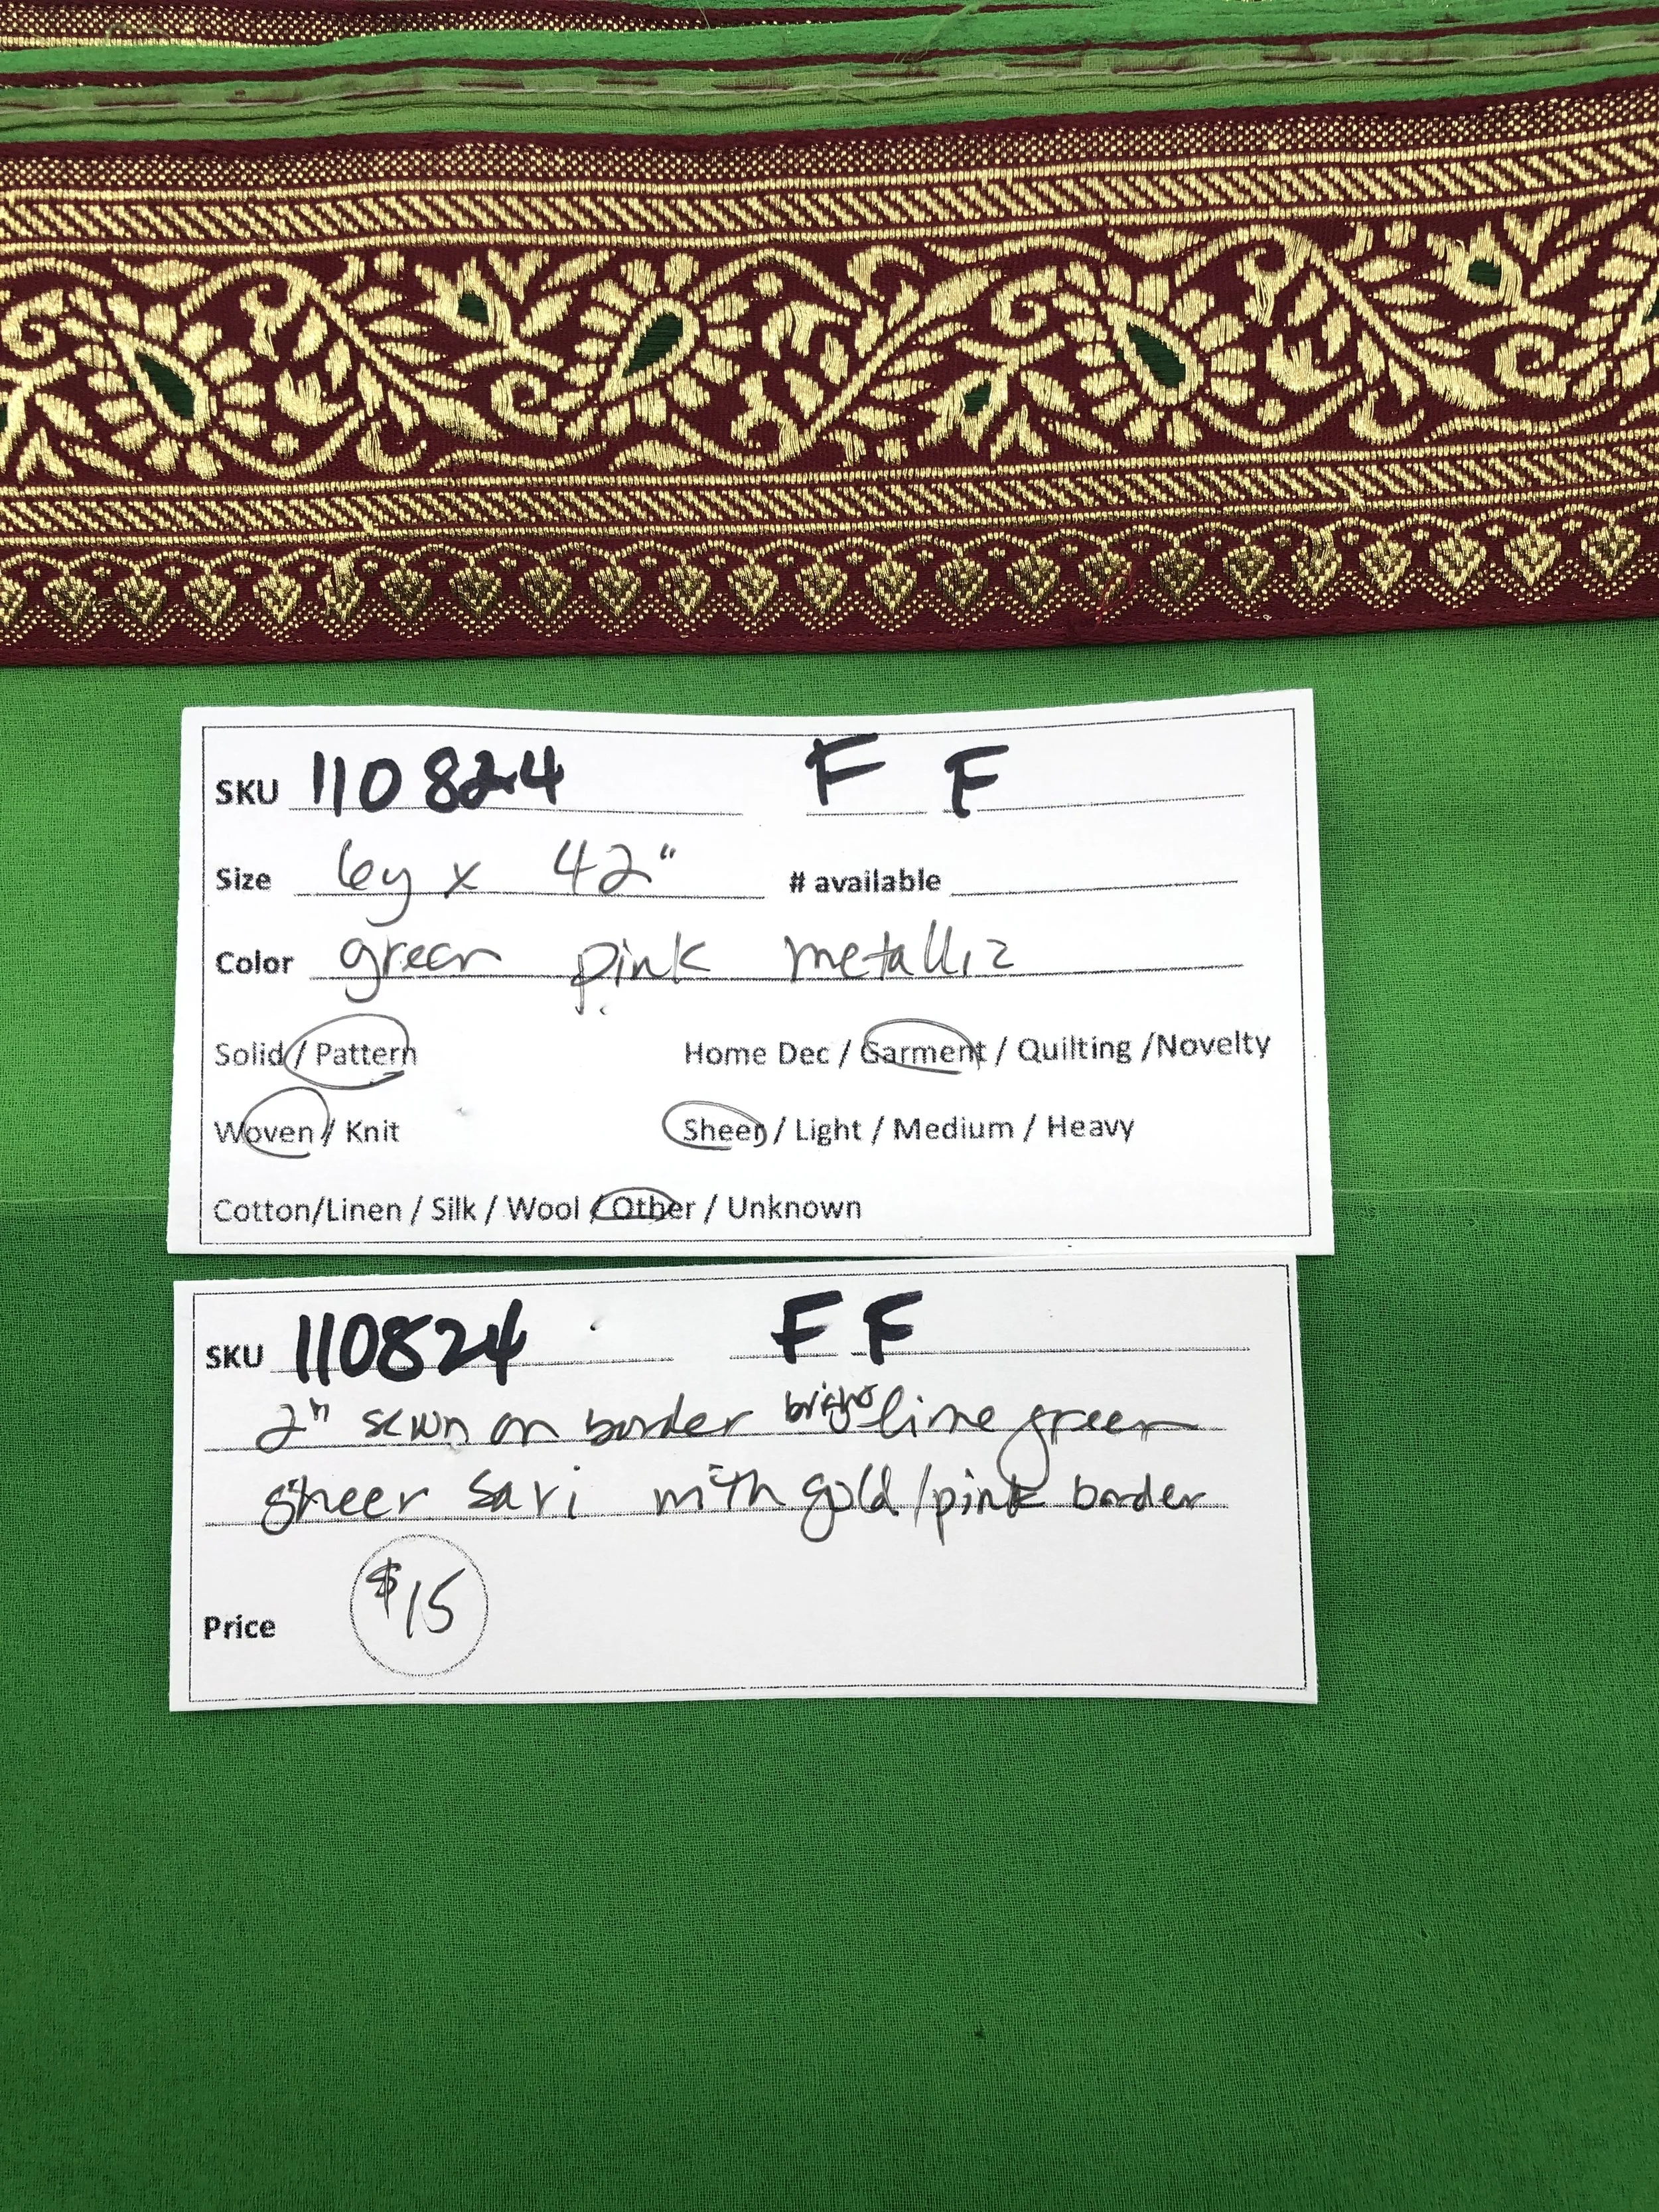 SKU 110824 F F
Size 6y x 42" # available
Color green pink metallic
Solid / Pattern Home Dec / Garment / Quilting /Novelty
Woven / Knit Sheer / Light / Medium / Heavy
Cotton/Linen / Silk / Wool / Other / Unknown
SKU 110824 F F
2" sewn on border bright lime green
sheer sari with gold/pink border
Price $15